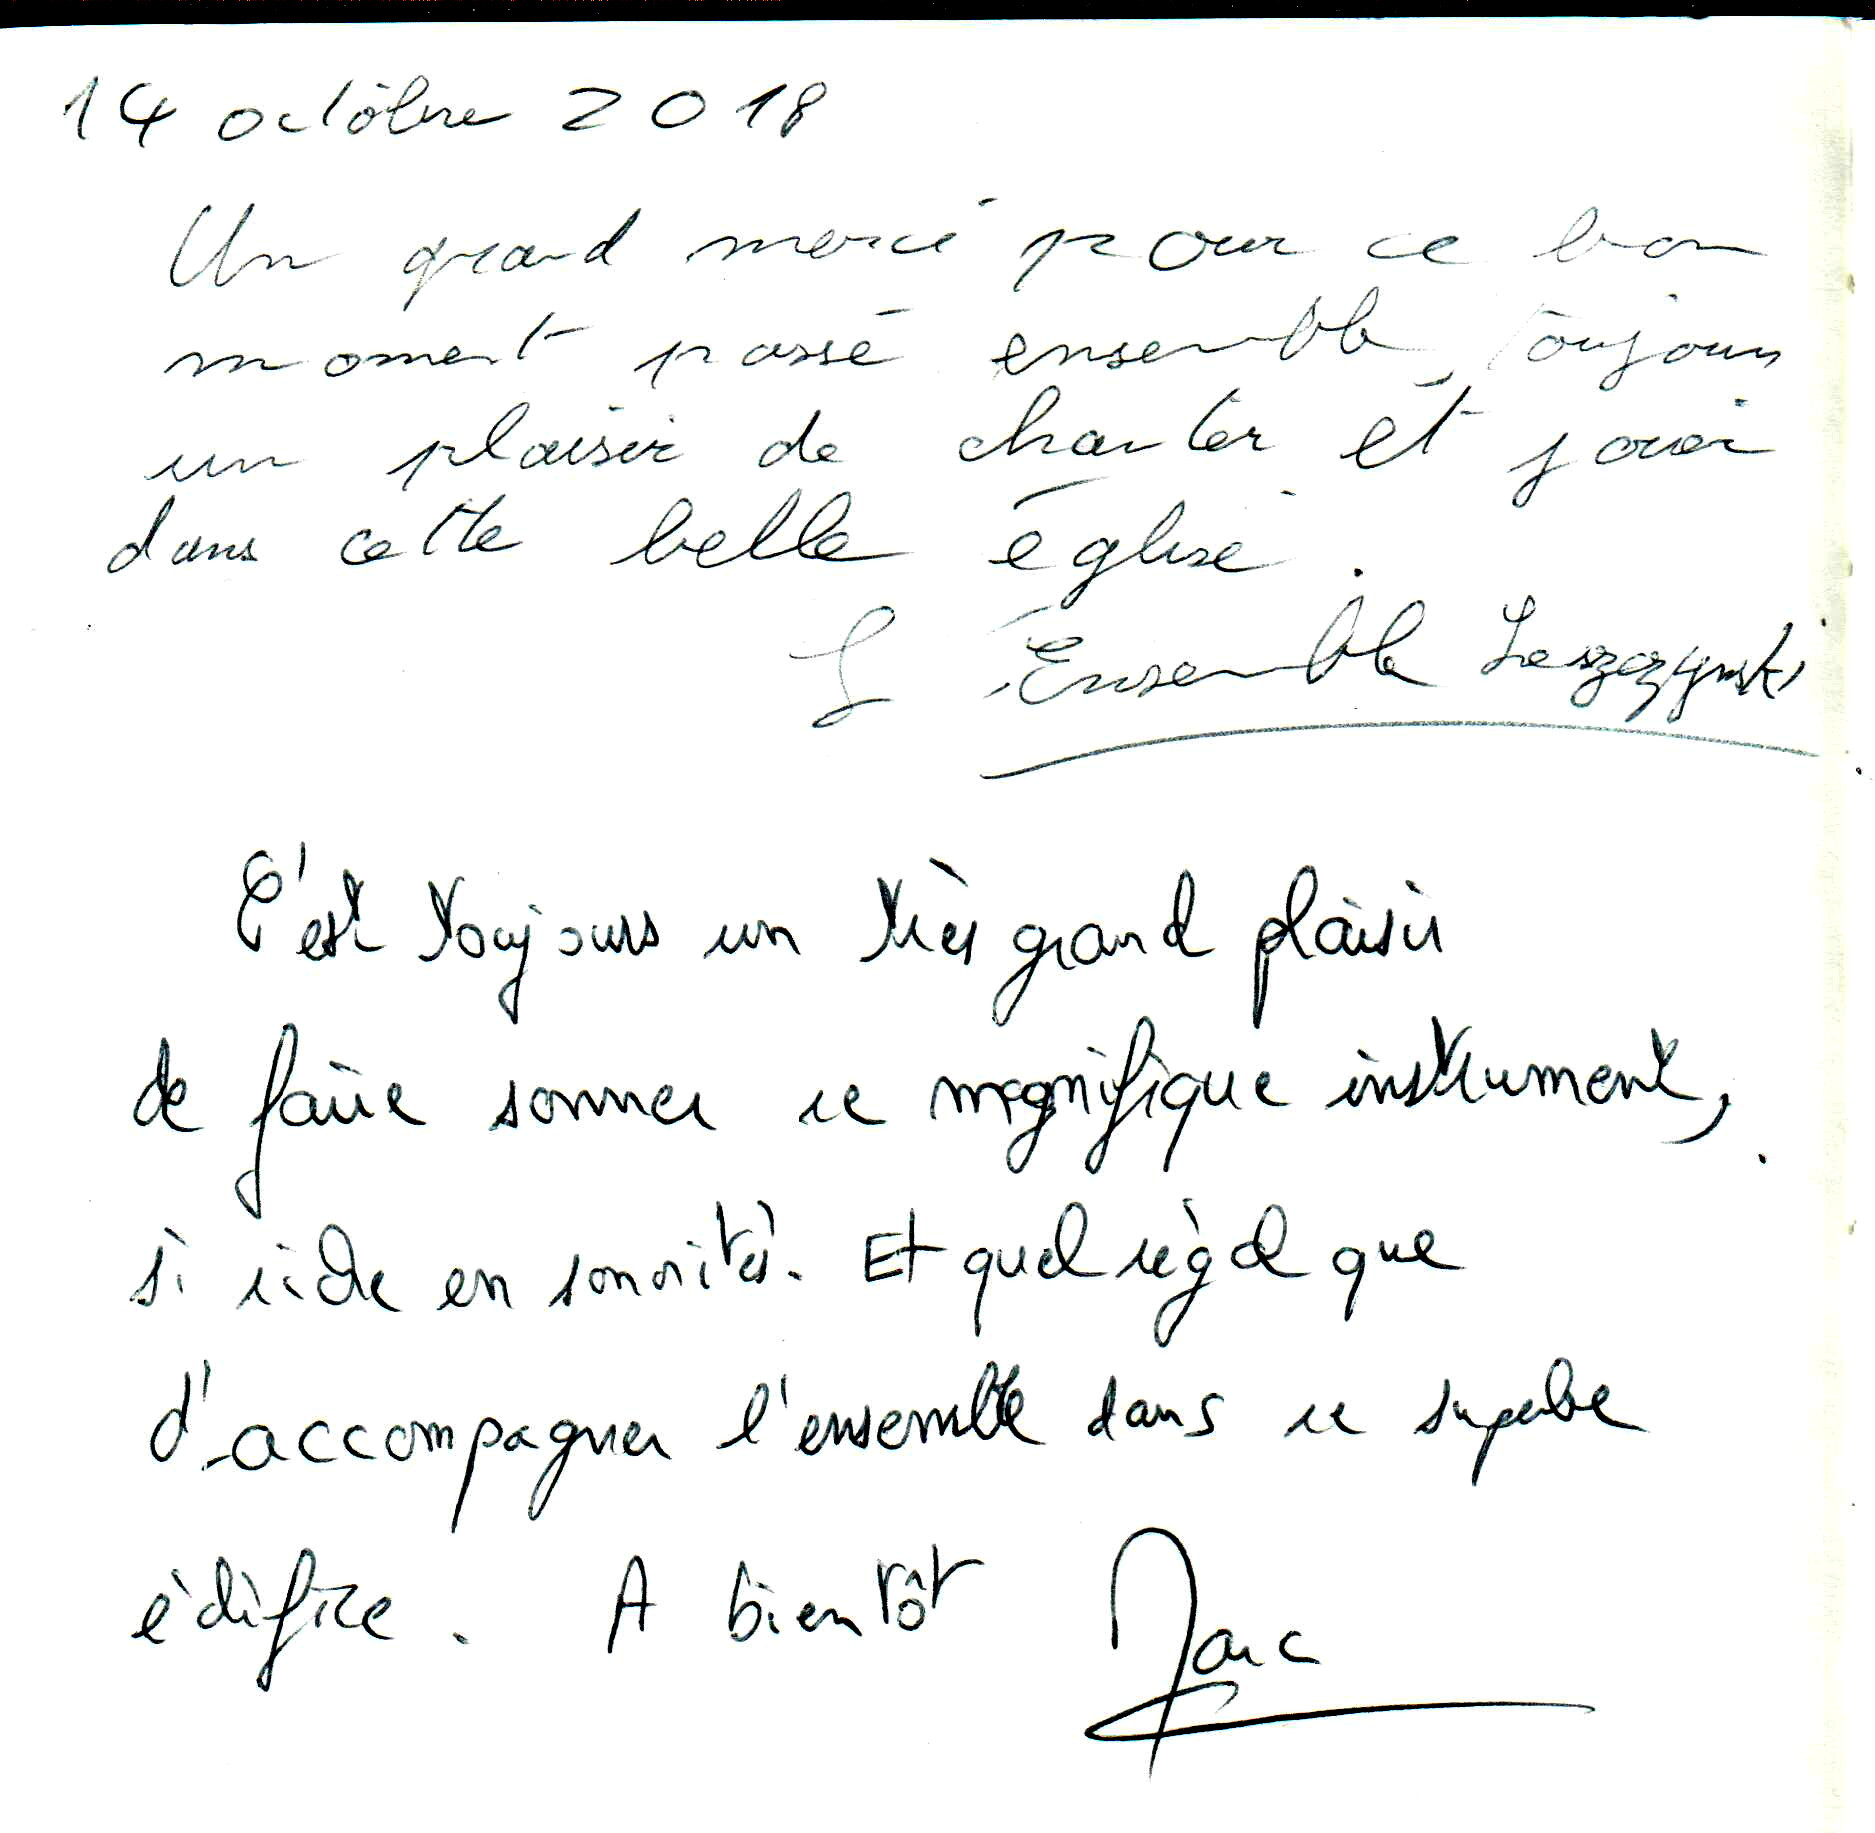 14 octobre 2018
Un grand merci pour ce bon
moment passé ensemble, toujours
un plaisir de chanter et jouer
dans cette belle église.
L'Ensemble Leszczynski
C'est toujours un très grand plaisir
de faire sonner ce magnifique instrument,
si riche en sonorités. Et quel régal que
d'accompagner l'ensemble dans ce superbe
édifice. A bientôt Marc